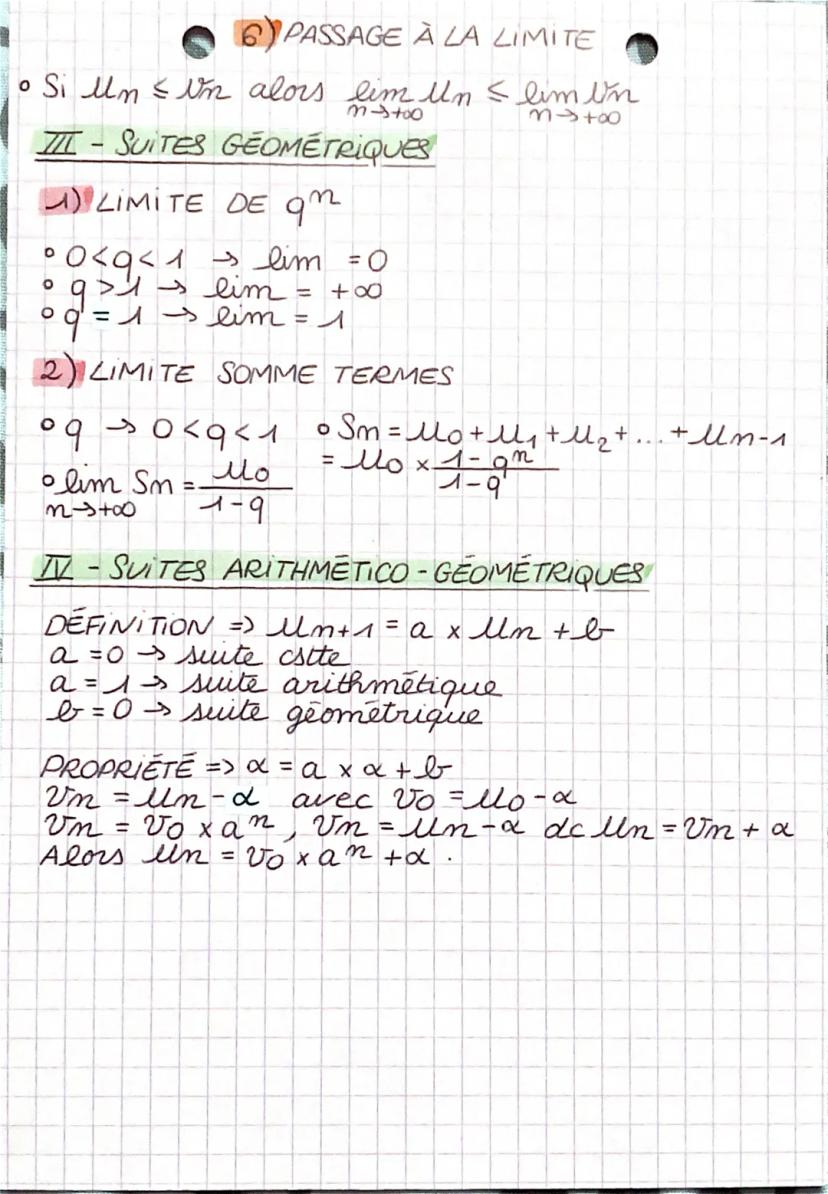 6) PASSAGE À LA LIMITE
° Si Un ≤ Vn alors lim Un ≤ lim Vn
n→+∞ n→+∞
III - SUITES GÉOMÉTRIQUES
1) LIMITE DE qⁿ
° 0<q<1 → lim = 0
° q>1 → lim = +∞
° q = 1 → lim = 1
2) LIMITE SOMME TERMES
° q → 0<q<1 ° Sn = U₀ + U₁ + U₂ + ... + Un-1
= U₀ × (1-qⁿ)/(1-q)
° lim Sn = U₀/(1-q)
n→+∞
IV - SUITES ARITHMÉTICO - GÉOMÉTRIQUES
DÉFINITION => Un+1 = a × Un + b
a = 0 → suite cstte
a = 1 → suite arithmétique
b = 0 → suite géométrique
PROPRIÉTÉ => α = a × α + b
Vn = Un - α avec V₀ = U₀ - α
Vn = V₀ × aⁿ, Vn = Un - α dc Un = Vn + α
Alors Un = V₀ × aⁿ + α .